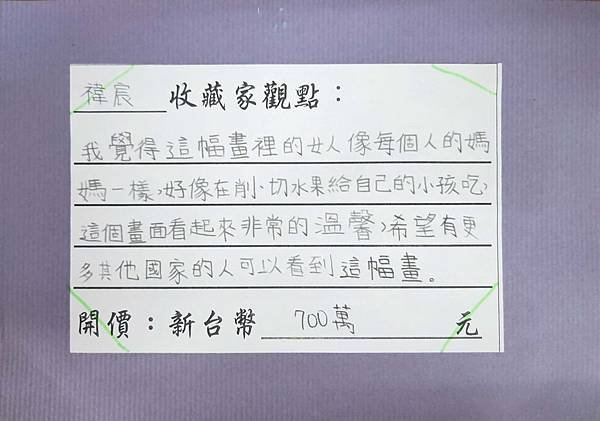 禕宸 收藏家觀點：
我覺得這幅畫裡的女人像每個人的媽
媽一樣，好像在削、切水果給自己的小孩吃，
這個畫面看起來非常的溫馨，希望有更
多其他國家的人可以看到這幅畫。
開價：新台幣 700萬 元